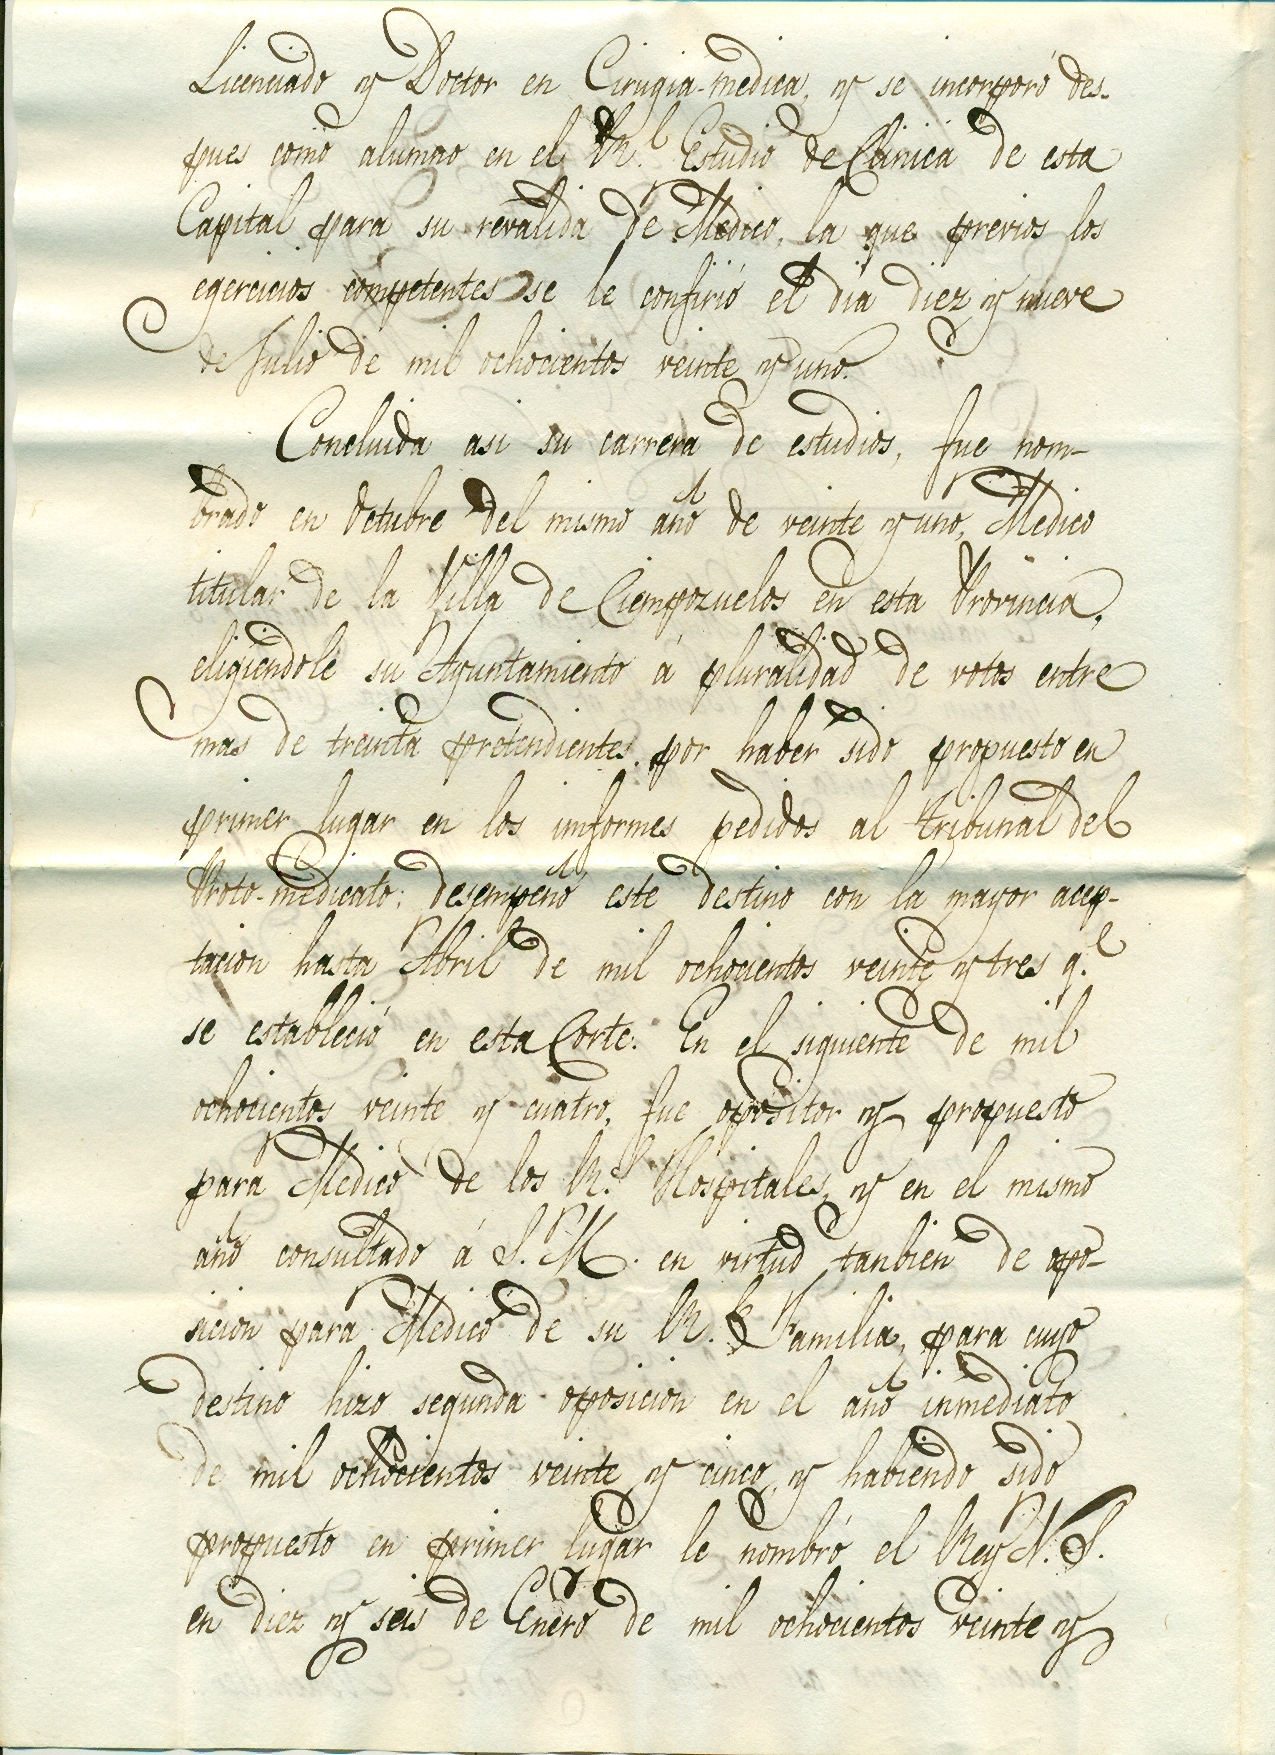 Licenciado y Doctor en Cirugia-medica, y se incorporó des-
pues como alumno en el Rl. Estudio de Clinica de esta
Capital para su revalida de Medico, la que previos los
egercicios competentes se le confirió el dia diez y nueve
de Julio de mil ochocientos veinte y uno.
Concluida asi su carrera de estudios, fue nom-
brado en Octubre del mismo año de veinte y uno, Medico
titular de la Villa de Ciempozuelos en esta Provincia,
eligiendole su Ayuntamiento á pluralidad de votos entre
mas de treinta pretendientes, por haber sido propuesto en
primer lugar en los imformes pedidos al tribunal del
Proto-medicato: desempeñó este destino con la mayor acep-
tacion hasta Abril de mil ochocientos veinte y tres q.e
se estableció en esta Corte. En el siguiente de mil
ochocientos veinte y cuatro, fue opositor y propuesto
para Medico de los R.s Hospitales, y en el mismo
año consultado á S. M. en virtud tanbien de opo-
sicion para Medico de su R.l Familia, para cuyo
destino hizo segunda oposicion en el año inmediato
de mil ochocientos veinte y cinco, y habiendo sido
propuesto en primer lugar le nombró el Rey N. S.
en diez y seis de Enero de mil ochocientos veinte y